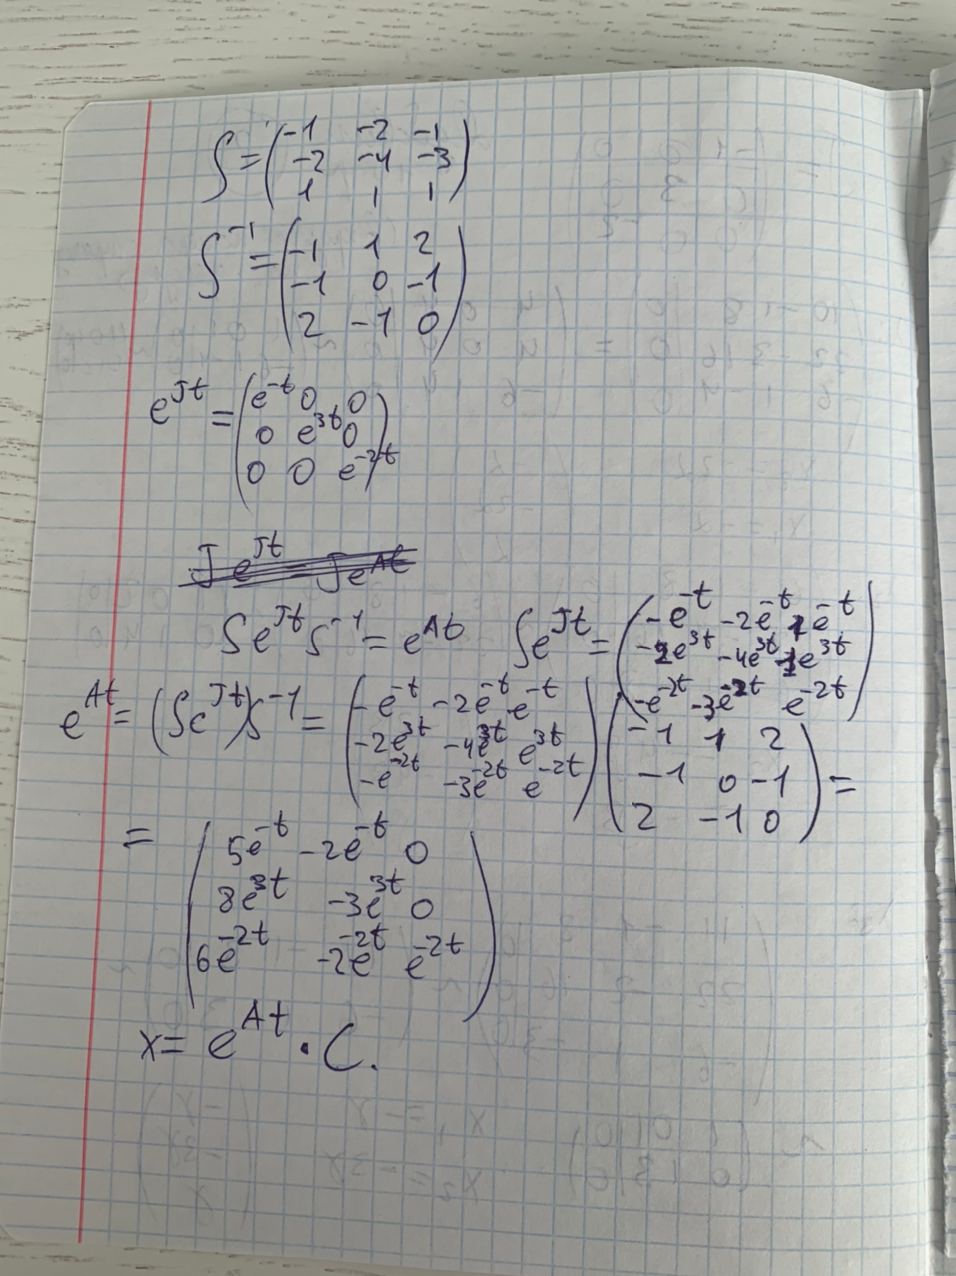 S = (-1 -2 -1
-2 -4 -3
1 1 1)
S^-1 = (-1 1 2
-1 0 -1
2 -1 0)
e^Jt = (e^-t 0 0
0 e^3t 0
0 0 e^-2t)
J e^Jt = J e^At
S e^Jt S^-1 = e^At S e^Jt = (-e^-t -2e^-t 1e^-t
-2e^3t -4e^3t 1e^3t
-e^-2t -3e^-2t e^-2t)
e^At = (S e^Jt) S^-1 = (-e^-t -2e^-t e^-t
-2e^3t -4e^3t e^3t
-e^-2t -3e^-2t e^-2t) (-1 1 2
-1 0 -1
2 -1 0) =
= (5e^-t -2e^-t 0
8e^3t -3e^3t 0
6e^-2t -2e^-2t e^-2t)
x = e^At · C.